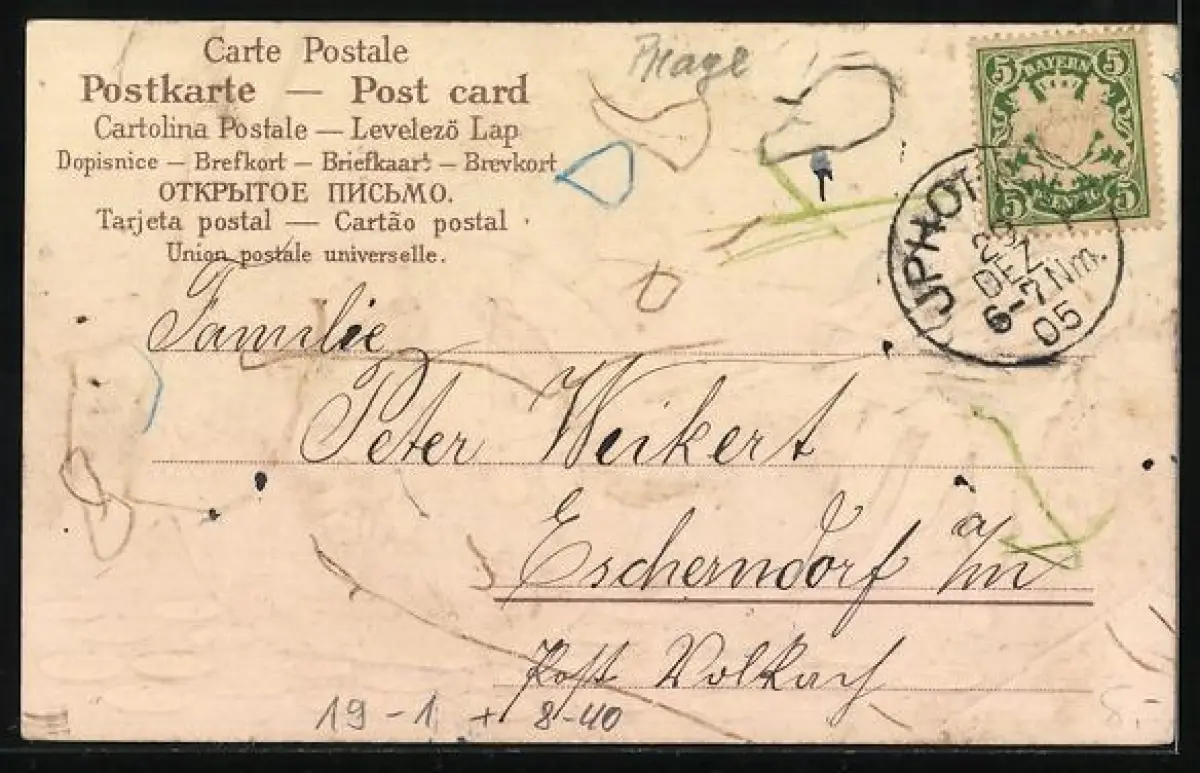 Carte Postale
Postkarte — Post card
Cartolina Postale — Levelező Lap
Dopisnice — Brefkort — Briefkaart — Brevkort
ОТКРЫТОЕ ПИСЬМО.
Tarjeta postal — Cartão postal
Union postale universelle.
5 BAYERN 5
5 5
DEZ.
6-7 Nm.
05
Familie
Peter Weikert
Escherndorf a/m
Post Volkach
19-1 + 8-40
5.-